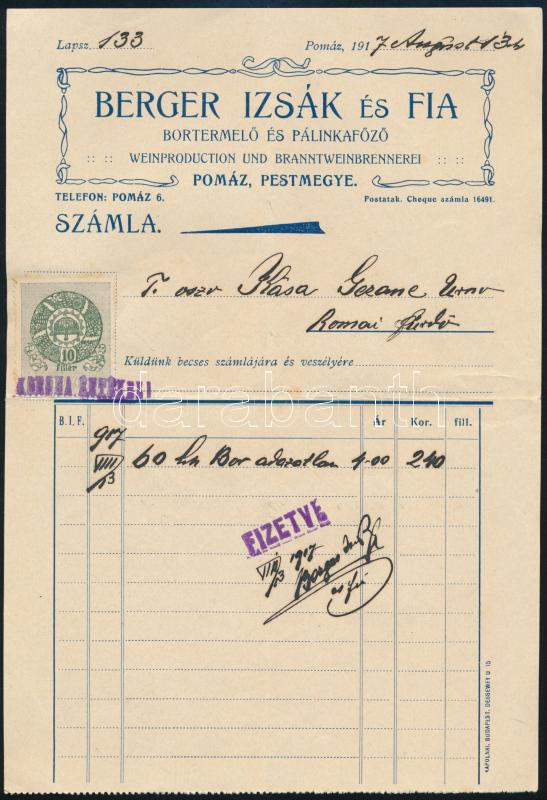 Lapsz. 133 Pomáz, 1917 August 13
BERGER IZSÁK ÉS FIA
BORTERMELŐ ÉS PÁLINKAFŐZŐ
WEINPRODUCTION UND BRANNTWEINBRENNEREI
POMÁZ, PESTMEGYE.
TELEFON: POMÁZ 6. Postatak. Cheque számla 16491.
SZÁMLA.
T. Kása Gezane
Romai fürdő
10
fillér
Küldünk becses számlájára és veszélyére
KORONA
darabanth
B. I. F. Ár Kor. fill.
917
VIII/13 60 Bor adozatlan 4.00 240
FIZETVE
VIII/13 1917
Berger
és fia
KAPOLNAI, BUDAPEST, DESSEWFFY U 15